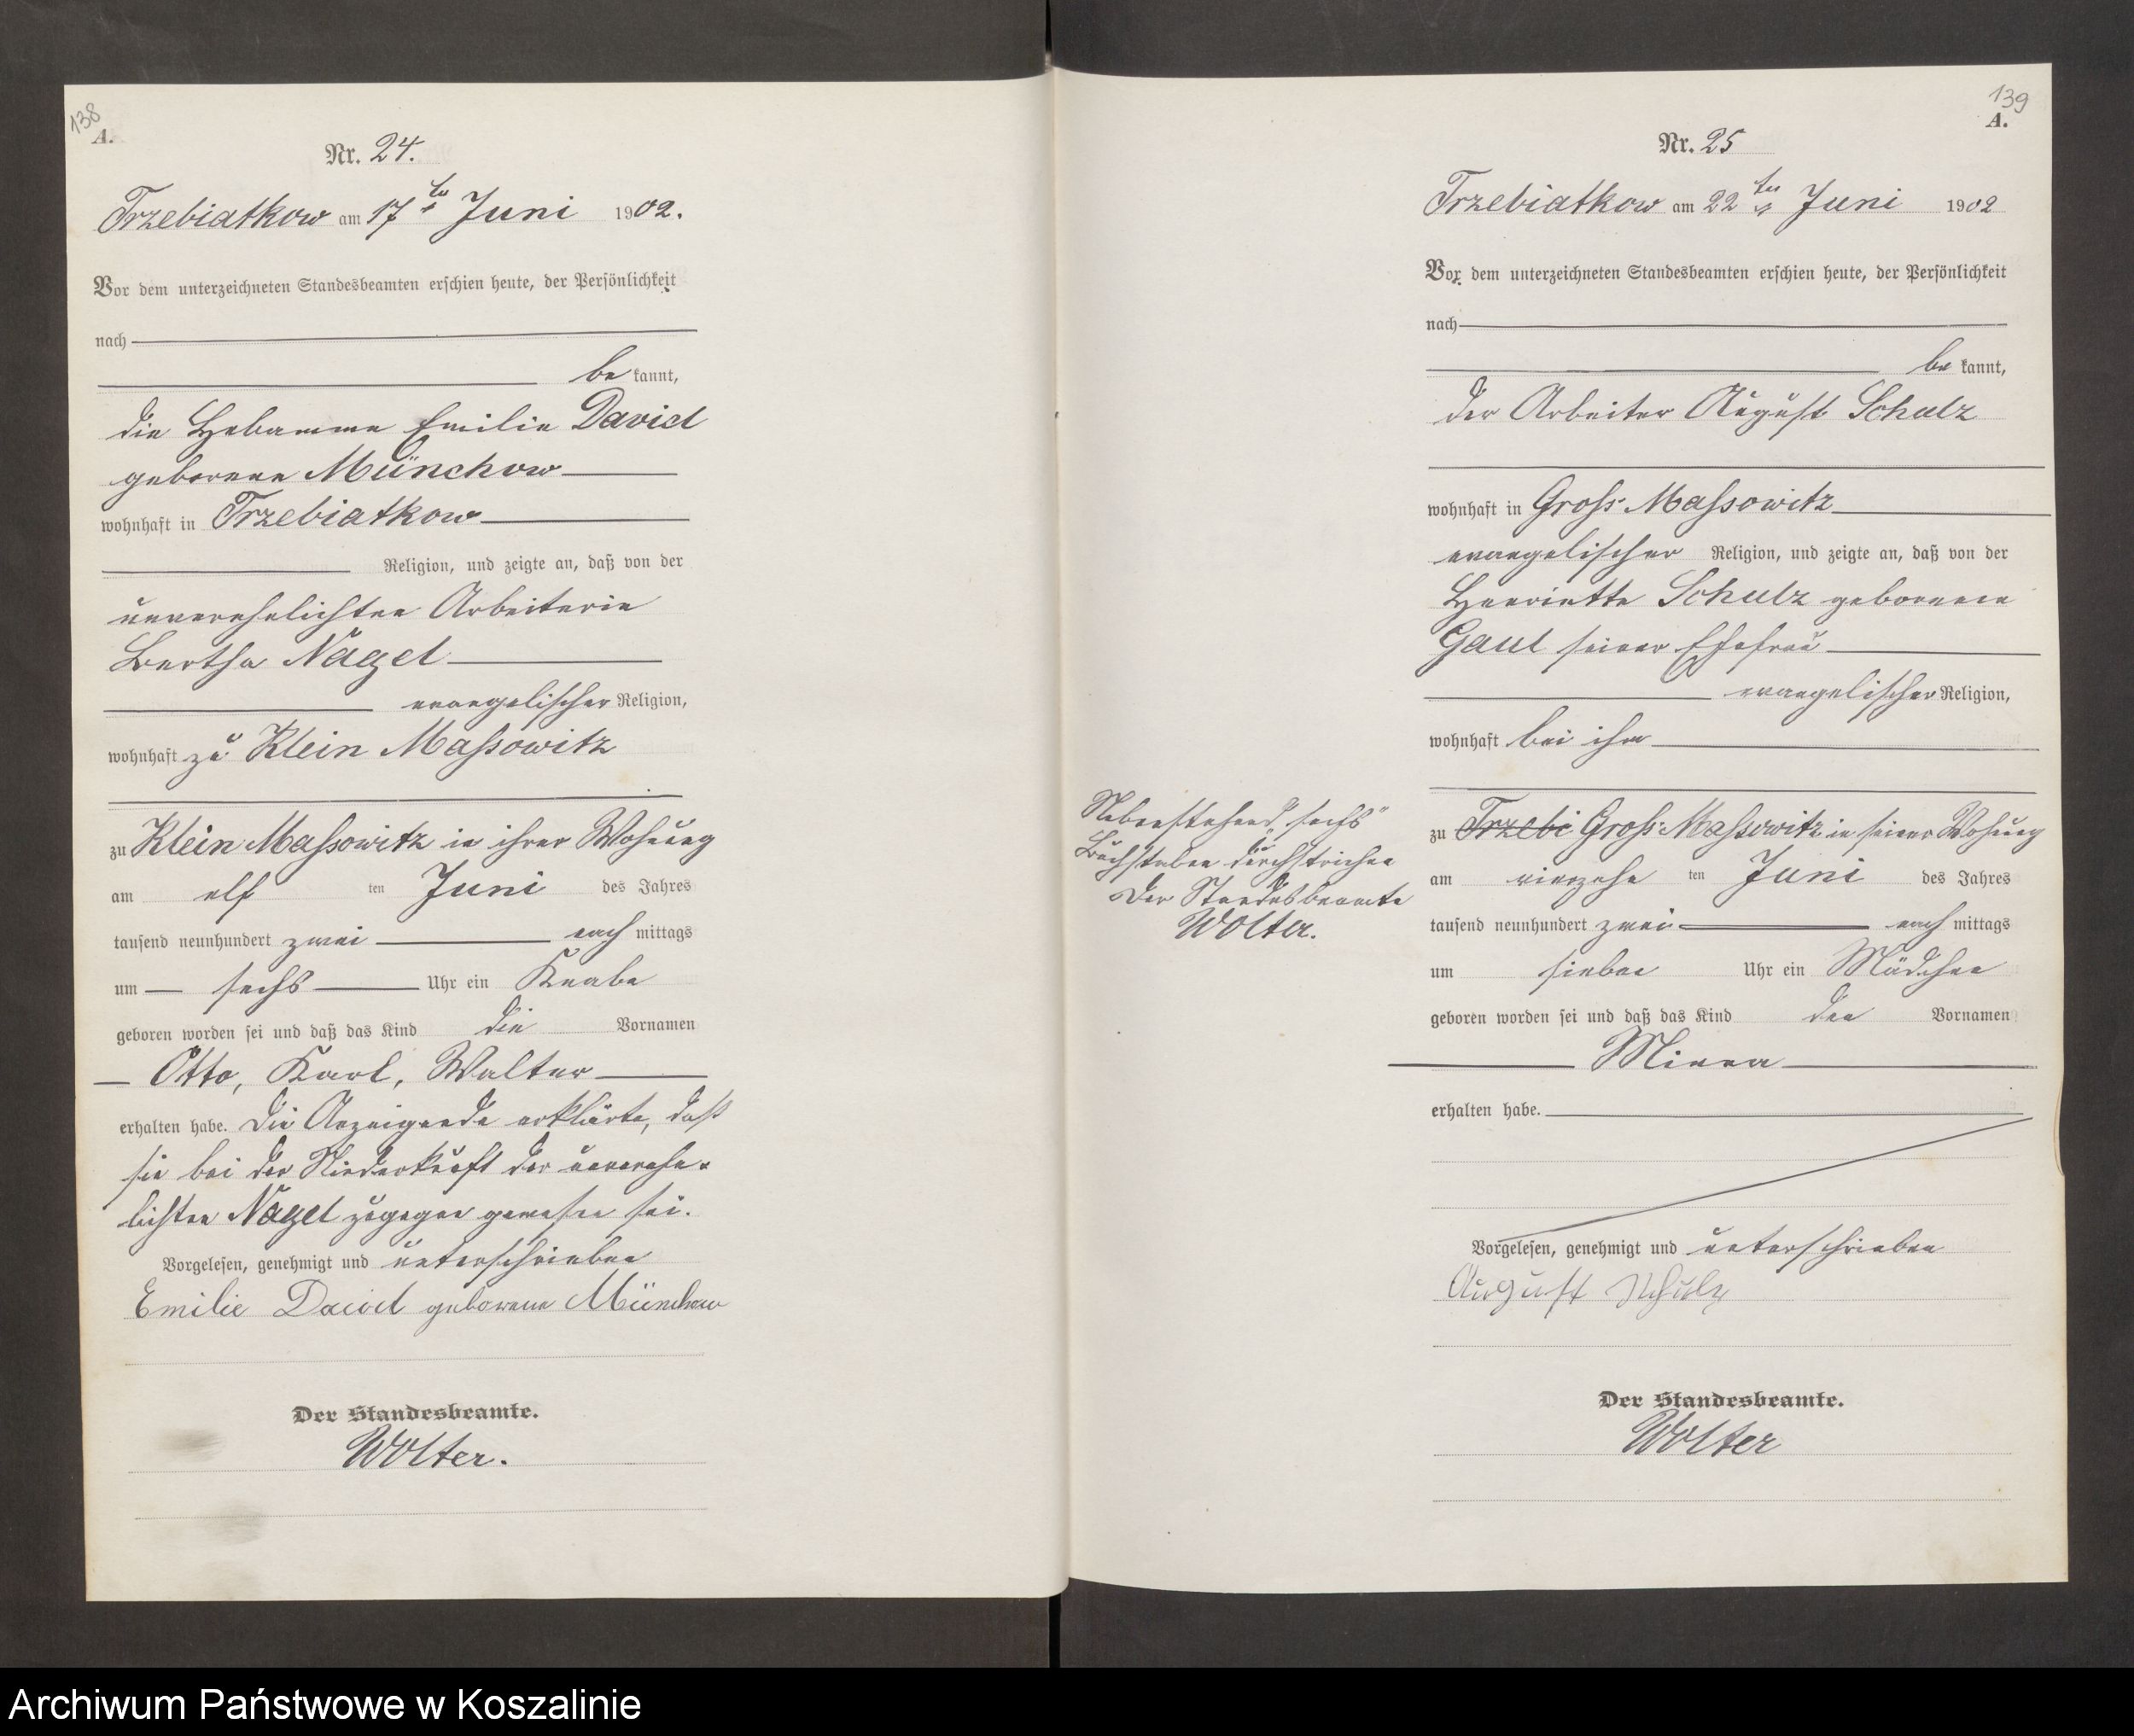 138
A.
Nr. 24.
Trzebiatkow am 17ten Juni 1902.
Vor dem unterzeichneten Standesbeamten erschien heute, der Persönlichkeit
nach
be kannt,
die Hebamme Emilie David
geborene Münchow
wohnhaft in Trzebiatkow
Religion, und zeigte an, daß von der
unverehelichten Arbeiterin
Bertha Nagel
evangelischer Religion,
wohnhaft zu Klein Massowitz
zu Klein Massowitz in ihrer Wohnung
am elf ten Juni des Jahres
tausend neunhundert zwei nach mittags
um sechs Uhr ein Knabe
geboren worden sei und daß das Kind die Vornamen
Otto, Karl, Walter
erhalten habe. Die Anzeigende erklärte, daß
sie bei der Niederkunft der unverehe-
lichten Nagel zugegen gewesen sei.
Vorgelesen, genehmigt und unterschrieben
Emilie David geborene Münchow
Der Standesbeamte.
Wolter.
139
A.
Nr. 25
Trzebiatkow am 22ten Juni 1902
Vor dem unterzeichneten Standesbeamten erschien heute, der Persönlichkeit
nach
be kannt,
der Arbeiter August Schulz
wohnhaft in Gross-Massowitz
evangelischer Religion, und zeigte an, daß von der
Henriette Schulz geborenen
Gaul seiner Ehefrau
evangelischer Religion,
wohnhaft bei ihm
zu Trzebi Gross-Massowitz in seiner Wohnung
am vierzehn ten Juni des Jahres
tausend neunhundert zwei nach mittags
um sieben Uhr ein Mädchen
geboren worden sei und daß das Kind den Vornamen
Minna
erhalten habe.
Vorgelesen, genehmigt und unterschrieben
August Schulz
Der Standesbeamte.
Wolter
Nebenstehend "sechs"
Buchstaben durchstrichen
Der Standesbeamte
Wolter.
Archiwum Państwowe w Koszalinie